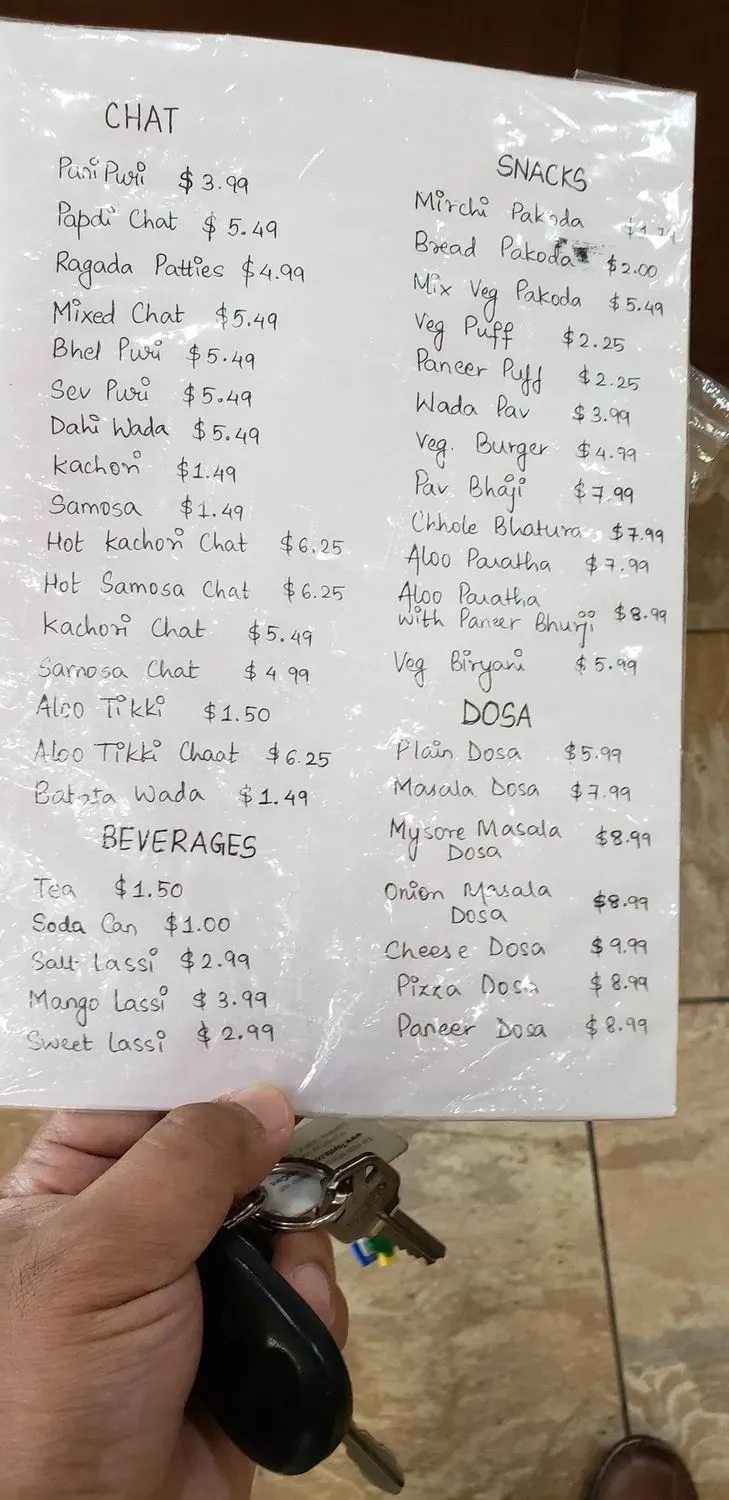 CHAT
Pani Puri $3.99
Papdi Chat $5.49
Ragada Patties $4.99
Mixed Chat $5.49
Bhel Puri $5.49
Sev Puri $5.49
Dahi Wada $5.49
Kachori $1.49
Samosa $1.49
Hot Kachori Chat $6.25
Hot Samosa Chat $6.25
Kachori Chat $5.49
Samosa Chat $4.99
Aloo Tikki $1.50
Aloo Tikki Chaat $6.25
Batata Wada $1.49
BEVERAGES
Tea $1.50
Soda Can $1.00
Salt Lassi $2.99
Mango Lassi $3.99
Sweet Lassi $2.99
SNACKS
Mirchi Pakoda
Bread Pakoda $2.00
Mix Veg Pakoda $5.49
Veg Puff $2.25
Paneer Puff $2.25
Wada Pav $3.99
Veg. Burger $4.99
Pav Bhaji $7.99
Chhole Bhatura $7.99
Aloo Paratha $7.99
Aloo Paratha
with Paneer Bhurji $8.99
Veg Biryani $5.99
DOSA
Plain Dosa $5.99
Masala Dosa $7.99
Mysore Masala $8.99
Dosa
Onion Masala $8.99
Dosa
Cheese Dosa $9.99
Pizza Dosa $8.99
Paneer Dosa $8.99